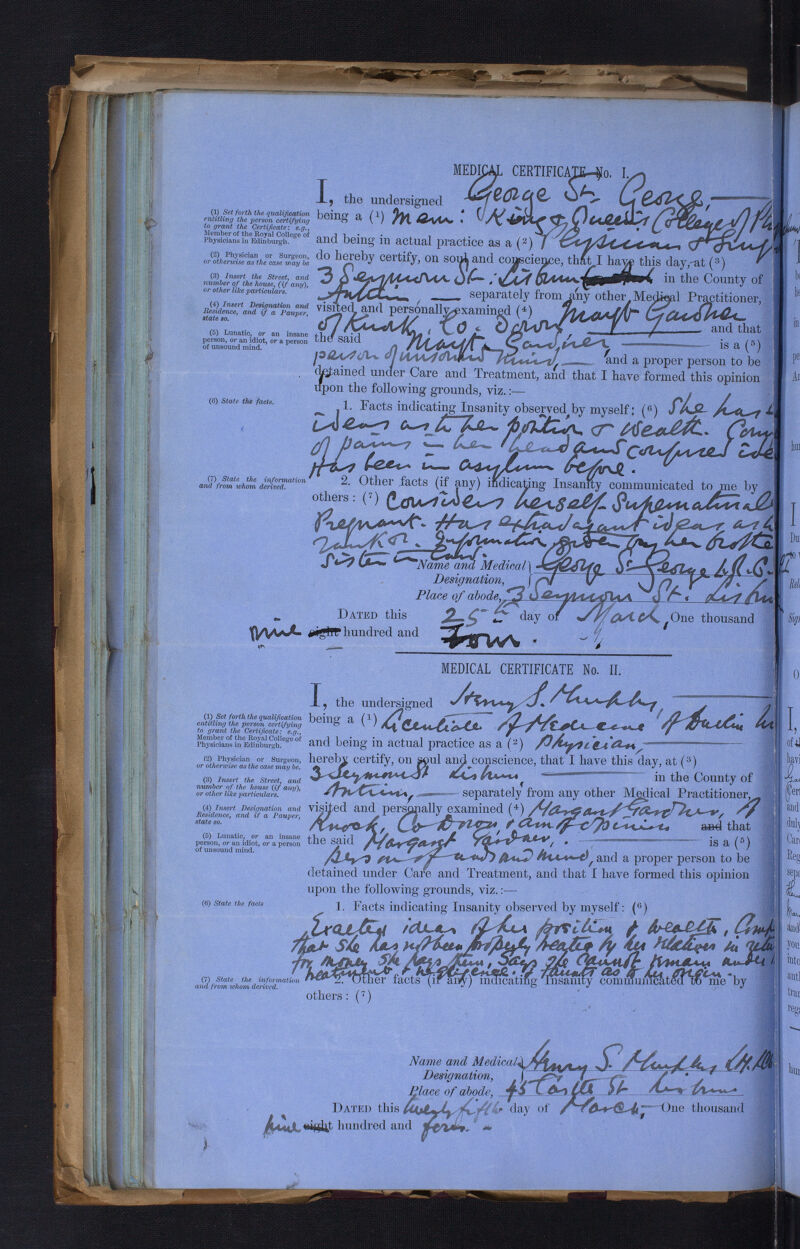 MEDICAL CERTIFICATE No. I.
I, the undersigned George St. George,
being a (1) Mem: King & Queen's College of
and being in actual practice as a (2) Physician &
do hereby certify, on soul and conscience, that I have this day, at (3)
3 Seymour St: Lisburn in the County of
Antrim, separately from any other Medical Practitioner,
visited and personally examined (4) Margt Gardner
of Knock, Co. Down, and that
the said Margt Gardner is a (5)
person of unsound mind, and a proper person to be
detained under Care and Treatment, and that I have formed this opinion
upon the following grounds, viz.:—
1. Facts indicating Insanity observed by myself: (6) She has
ideas as to her position & wealth.
of pains in her head and confused
Has been in asylum before.
2. Other facts (if any) indicating Insanity communicated to me by
others: (7) Considers herself Supernatural
Pregnant. Has extravagant ideas as
rank &c. Information given by her
Sister in Law.
Name and Medical Designation, George St George
Place of abode, 3 Seymour St. Lisburn
DATED this 25th day of March, One thousand
nine eight hundred and four.
(1) Set forth the qualification
entitling the person certifying
to grant the Certificate: e.g.,
Member of the Royal College of
Physicians in Edinburgh.
(2) Physician or Surgeon,
or otherwise as the case may be
(3) Insert the Street, and
number of the house, (if any),
or other like particulars.
(4) Insert Designation and
Residence, and if a Pauper,
state so.
(5) Lunatic, or an insane
person, or an idiot, or a person
of unsound mind.
(6) State the facts.
(7) State the information
and from whom derived.
MEDICAL CERTIFICATE No. II.
I, the undersigned Henry S. Murphy,
being a (1) Licentiate of Medicine of Dublin
and being in actual practice as a (2) Physician,
hereby certify, on soul and conscience, that I have this day, at (3)
3 Seymour St Lisburn, in the County of
Antrim, separately from any other Medical Practitioner,
visited and personally examined (4) Margaret Gardner, of
Knock, Co Down & am of opinion and that
the said Margaret Gardner, is a (5)
person of unsound mind, and a proper person to be
detained under Care and Treatment, and that I have formed this opinion
upon the following grounds, viz.:—
1. Facts indicating Insanity observed by myself: (6)
Exalted ideas of her position & wealth,
that she has not been properly treated by her relatives in
for money she pays them, Says she cannot remain under
treatment & negligence. & taunts as to her origin.
2. Other facts (if any) indicating Insanity communicated to me by
others: (7)
Name and Medical Designation, Henry S. Murphy
Place of abode, 45 Castle St Lisburn
DATED this twenty fifth day of March, One thousand
nine eight hundred and four.
(1) Set forth the qualification
entitling the person certifying
to grant the Certificate: e.g.,
Member of the Royal College of
Physicians in Edinburgh.
(2) Physician or Surgeon,
or otherwise as the case may be.
(3) Insert the Street, and
number of the house (if any),
or other like particulars.
(4) Insert Designation and
Residence, and if a Pauper,
state so.
(5) Lunatic, or an insane
person, or an idiot, or a person
of unsound mind.
(6) State the facts
(7) State the information
and from whom derived.